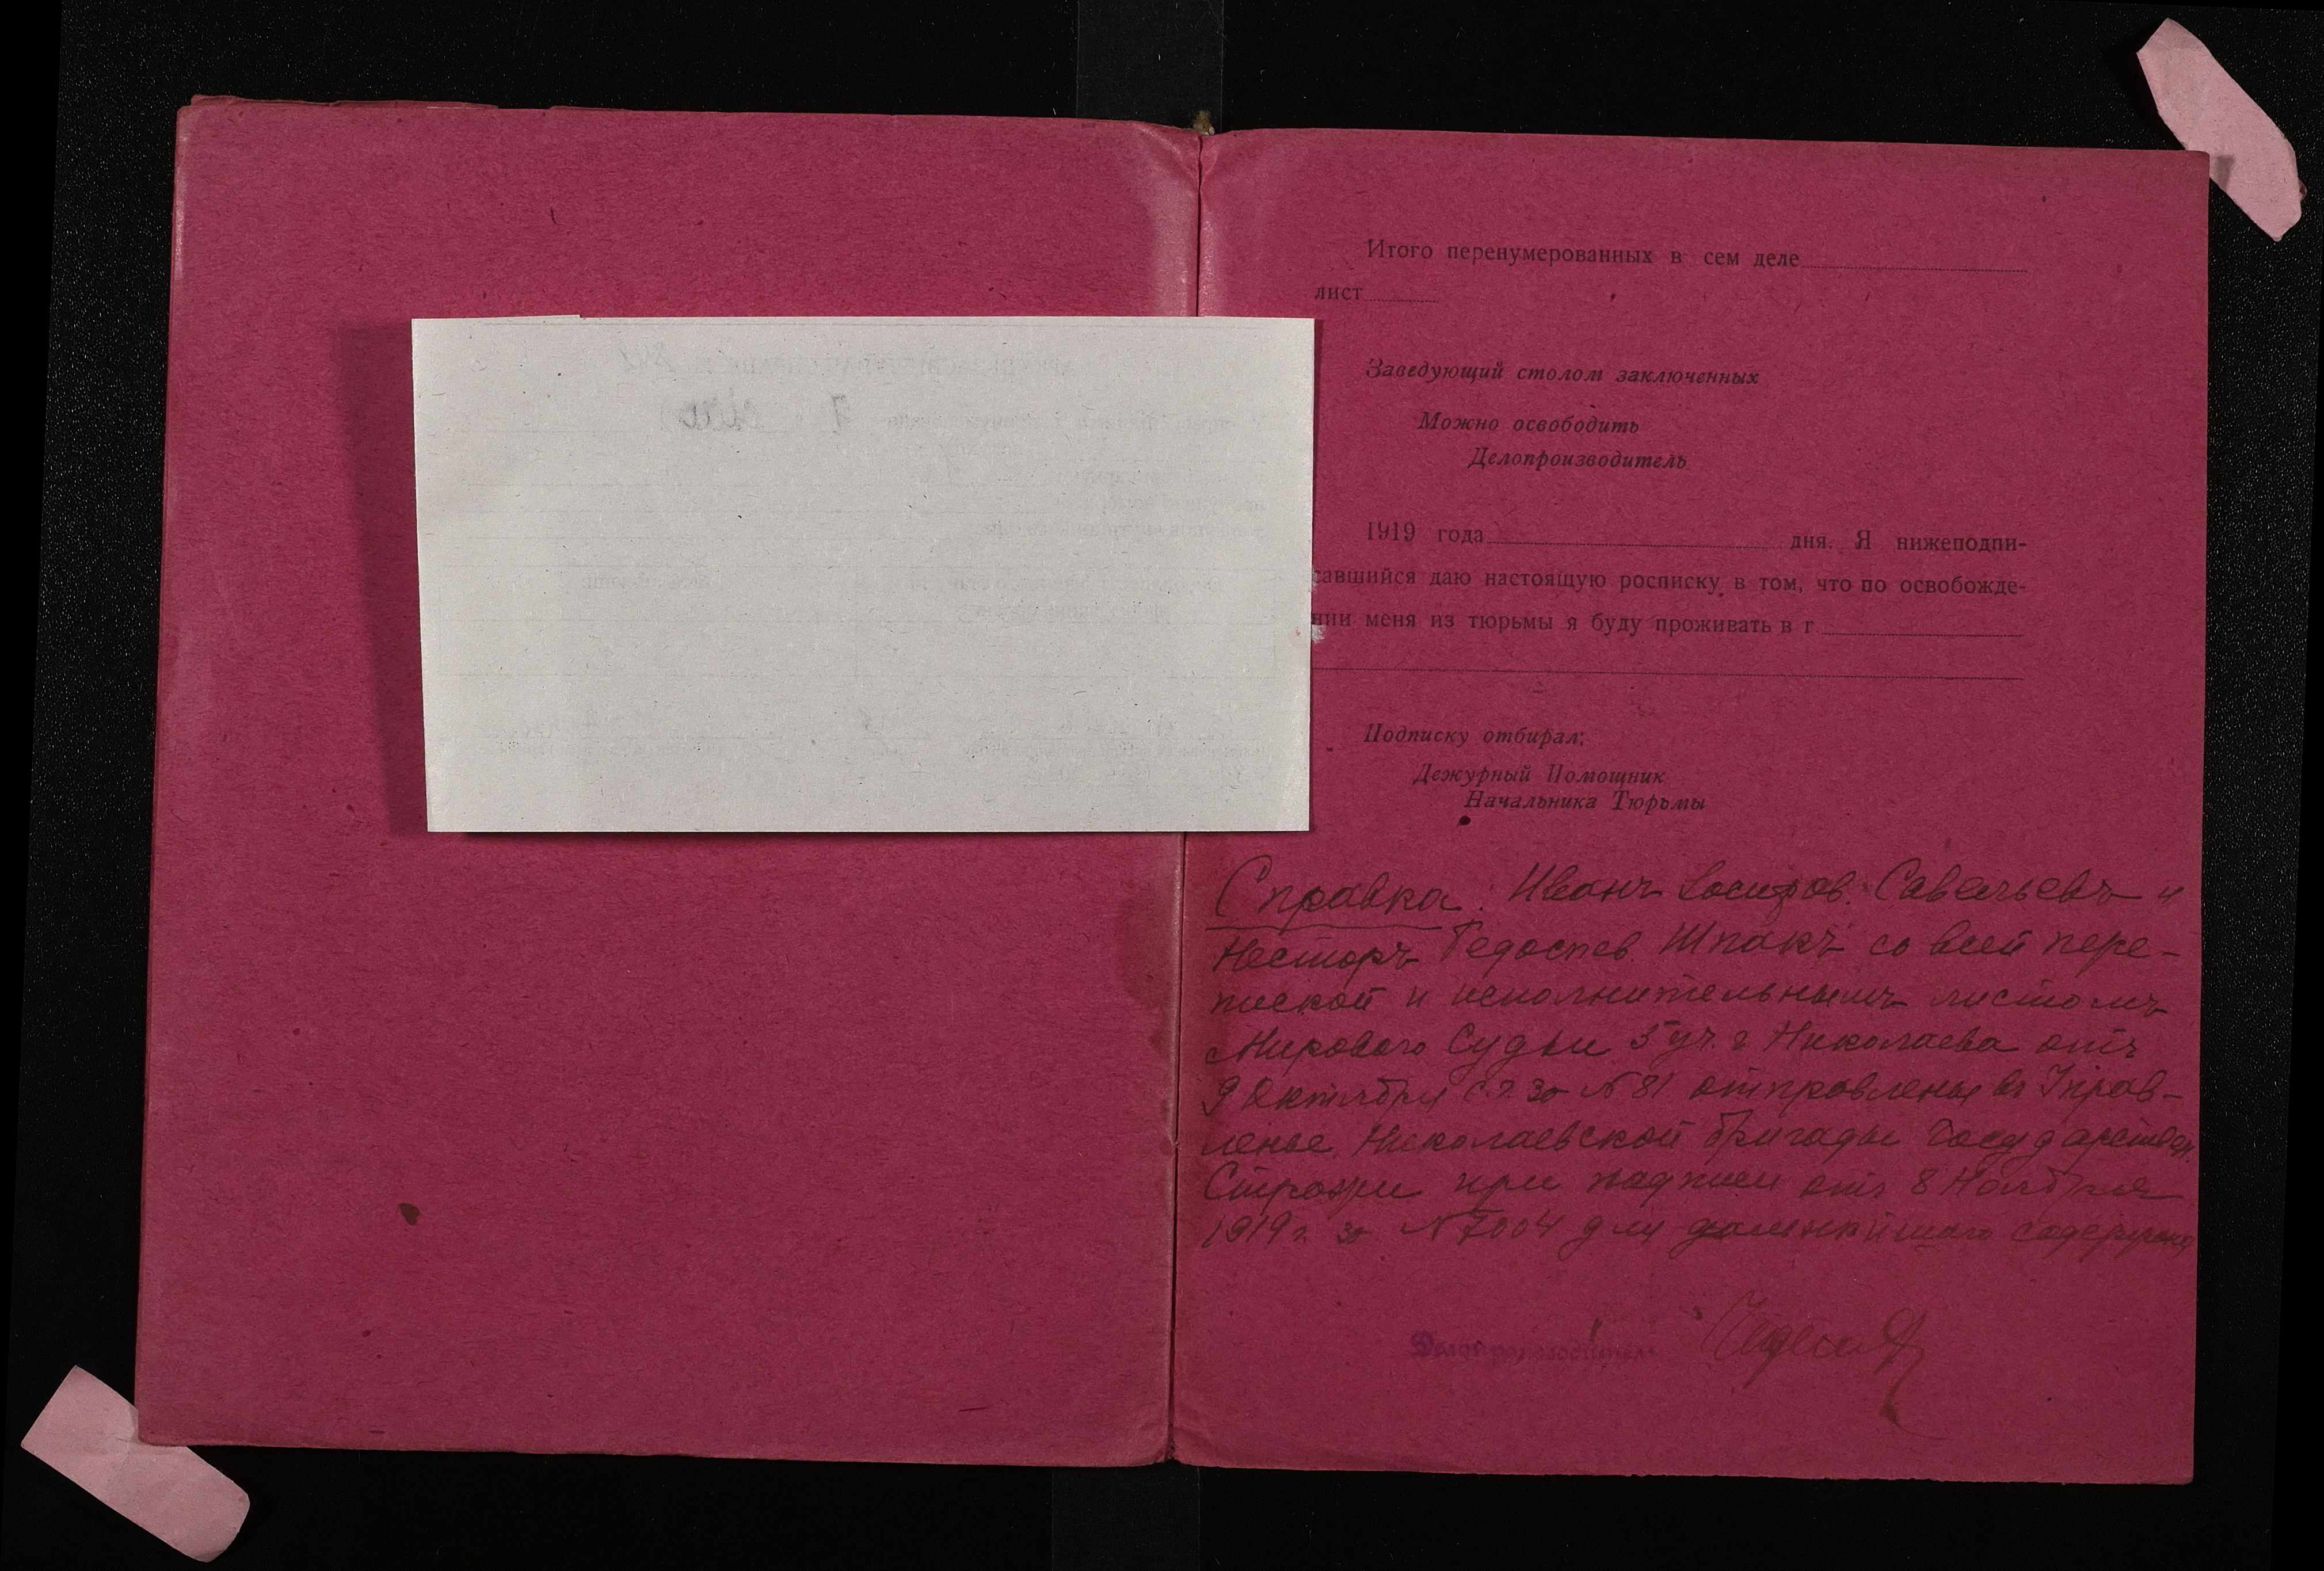 Итого перенумерованных в сем деле
лист
Заведующий столом заключенных
Можно освободить
Делопроизводитель
1919 года дня. Я нижеподпи-
савшийся даю настоящую росписку в том, что по освобожде-
нии меня из тюрьмы я буду проживать в г
Подписку отбирал:
Дежурный Помощник
Начальника Тюрьмы
Справка: Иванъ Савельевъ и
Несторъ Шпакъ со всей пере-
пиской и исполнительнымъ листомъ
Мирового Судьи 5 уч. г Николаева отъ
9 Октября с.г. за № 81 отправлены въ Управ-
ленье Николаевской бригады Государствен.
Стражи при отъ 8 Ноября
1919 г. за № 7004 для дальнѣйшаго
Делопроизводитель